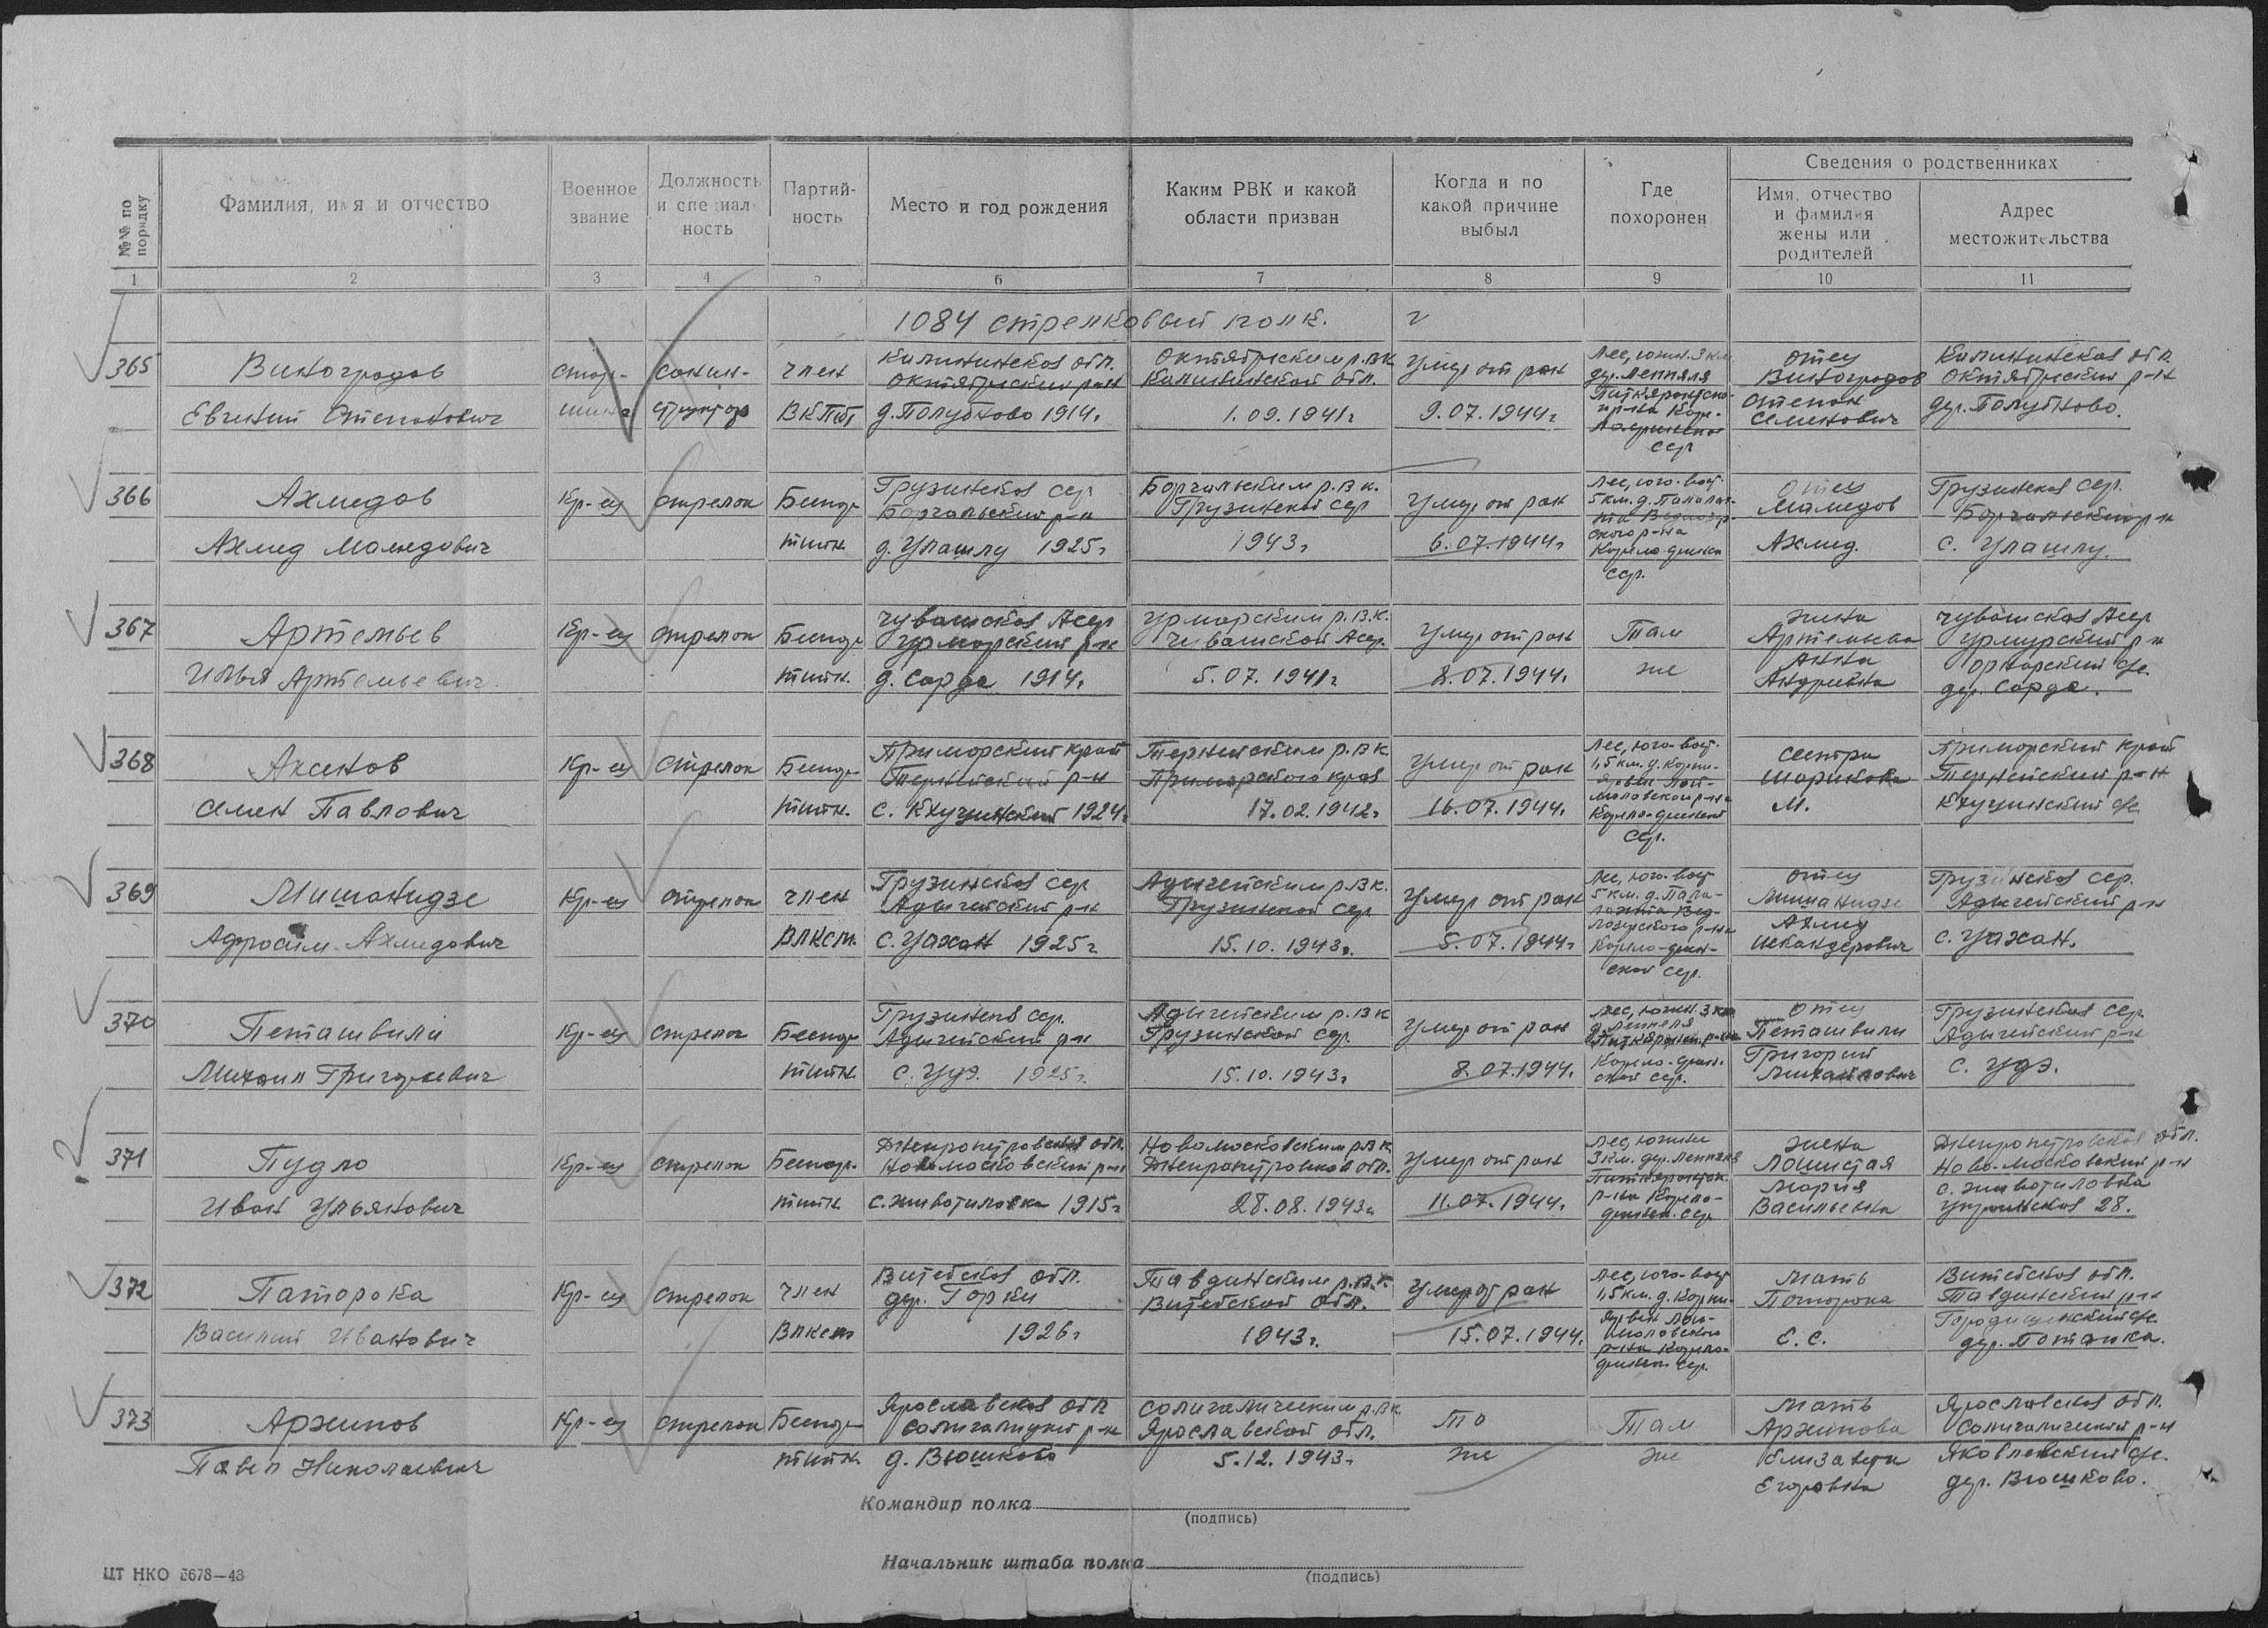 №№ по порядку
Фамилия, имя и отчество
Военное звание
Должность и специальность
Партийность
Место и год рождения
Каким РВК и какой области призван
Когда и по какой причине выбыл
Где похоронен
Сведения о родственниках
Имя, отчество и фамилия жены или родителей
Адрес местожительства
1 2 3 4 5 6 7 8 9 10 11
1084 стрелковый полк.
365 Виноградов Евгений Степанович
стар-шина
санин-структор
член ВКП(б)
Калининская обл. Октябрьский р-н д. Полубково 1914г
Октябрьским р.в.к. Калининской обл. 1.09.1941г
Умер от ран 9.07.1944г
Лес, южн. 3 км. дер. Леппяля
отец Виноградов Степан Семенович
Калининская обл. Октябрьский р-н дер. Полубково.
366 Ахмедов Ахмед Мамедович
кр-ец
стрелок
Беспартийн.
Грузинская сср Борчальский р-н д. Улашлу 1925г
Борчальским р.в.к. Грузинской сср 1943г
Умер от ран 6.07.1944г
Лес, юго-вост. 5 км.
отец Мамедов Ахмед.
Грузинская сср. Борчальский р-н с. Улашлу.
367 Артемьев Илья Артемьевич
кр-ец
стрелок
Беспартийн.
Чувашская Асср Урмарский р-н д. Сарда 1914г
Урмарским р.в.к. Чувашской Асср. 5.07.1941г
Умер от ран 8.07.1944г
Там же
жена Артемьева Анна Андреевна
Чувашская Асср Урмурский р-н дер. Сарда.
368 Аксенов Семен Павлович
кр-ец
стрелок
Беспартийн.
Приморский край Тернейский р-н 1924г
Тернейским р.в.к. Приморского края 17.02.1942г
Умер от ран 16.07.1944г
Лес, юго-вост. 1,5 км.
сестра Шарикова М.
Приморский край Тернейский р-н
369 Мишанидзе Ахмедович
кр-ец
стрелок
член ВЛКСМ.
Грузинская сср Адыгейский р-н с. Цахан 1925г
Адыгейским р.в.к. Грузинской сср 15.10.1943г.
Умер от ран 5.07.1944г
Лес, юго-вост 5 км.
отец Мишанидзе Ахмед Искандерович
Грузинская сср. Адыгейский р-н с. Цахан.
370 Петашвили Михаил Григорьевич
кр-ец
стрелок
Беспартийн.
Грузинская сср. Адыгейский р-н с. Удэ. 1925г.
Адыгейским р.в.к Грузинской сср. 15.10.1943г
Умер от ран 8.07.1944г
Лес, южн. 3 км
отец Петашвили Григорий Михайлович
Грузинская сср Адыгейский р-н с. Удэ.
371 Пудло Иван Ульянович
кр-ец
стрелок
Беспартийн.
Днепропетровская обл. Новомосковский р-н с. Животиловка 1915г
Новомосковским р.в.к Днепропетровской обл. 28.08.1943г
Умер от ран 11.07.1944г
Лес, южнее 3 км. дер. Леппяля
жена Мария Васильевна
Днепропетровская обл. Ново-московский р-н с. Животиловка 28.
372 Паторока Василий Иванович
кр-ец
стрелок
член Влксм
Витебская обл. дер. Горки 1926г
Витебской обл. 1943г.
Умер от ран 15.07.1944г
Лес, юго-вост 1,5 км.
мать Паторока Е. С.
Витебская обл.
373 Архипов Павел Николаевич
кр-ец
стрелок
Беспартийн.
Ярославская обл Солигалицкий р-н д. Вюшково
Солигаличским р.в.к. Ярославской обл. 5.12.1943г
То же
Там же
мать Архипова Елизавета Егоровна
Ярославская обл. Солигаличский р-н Яковлевский дер. Вюшково.
Командир полка
(подпись)
Начальник штаба полка
(подпись)
ЦТ НКО 5678—43